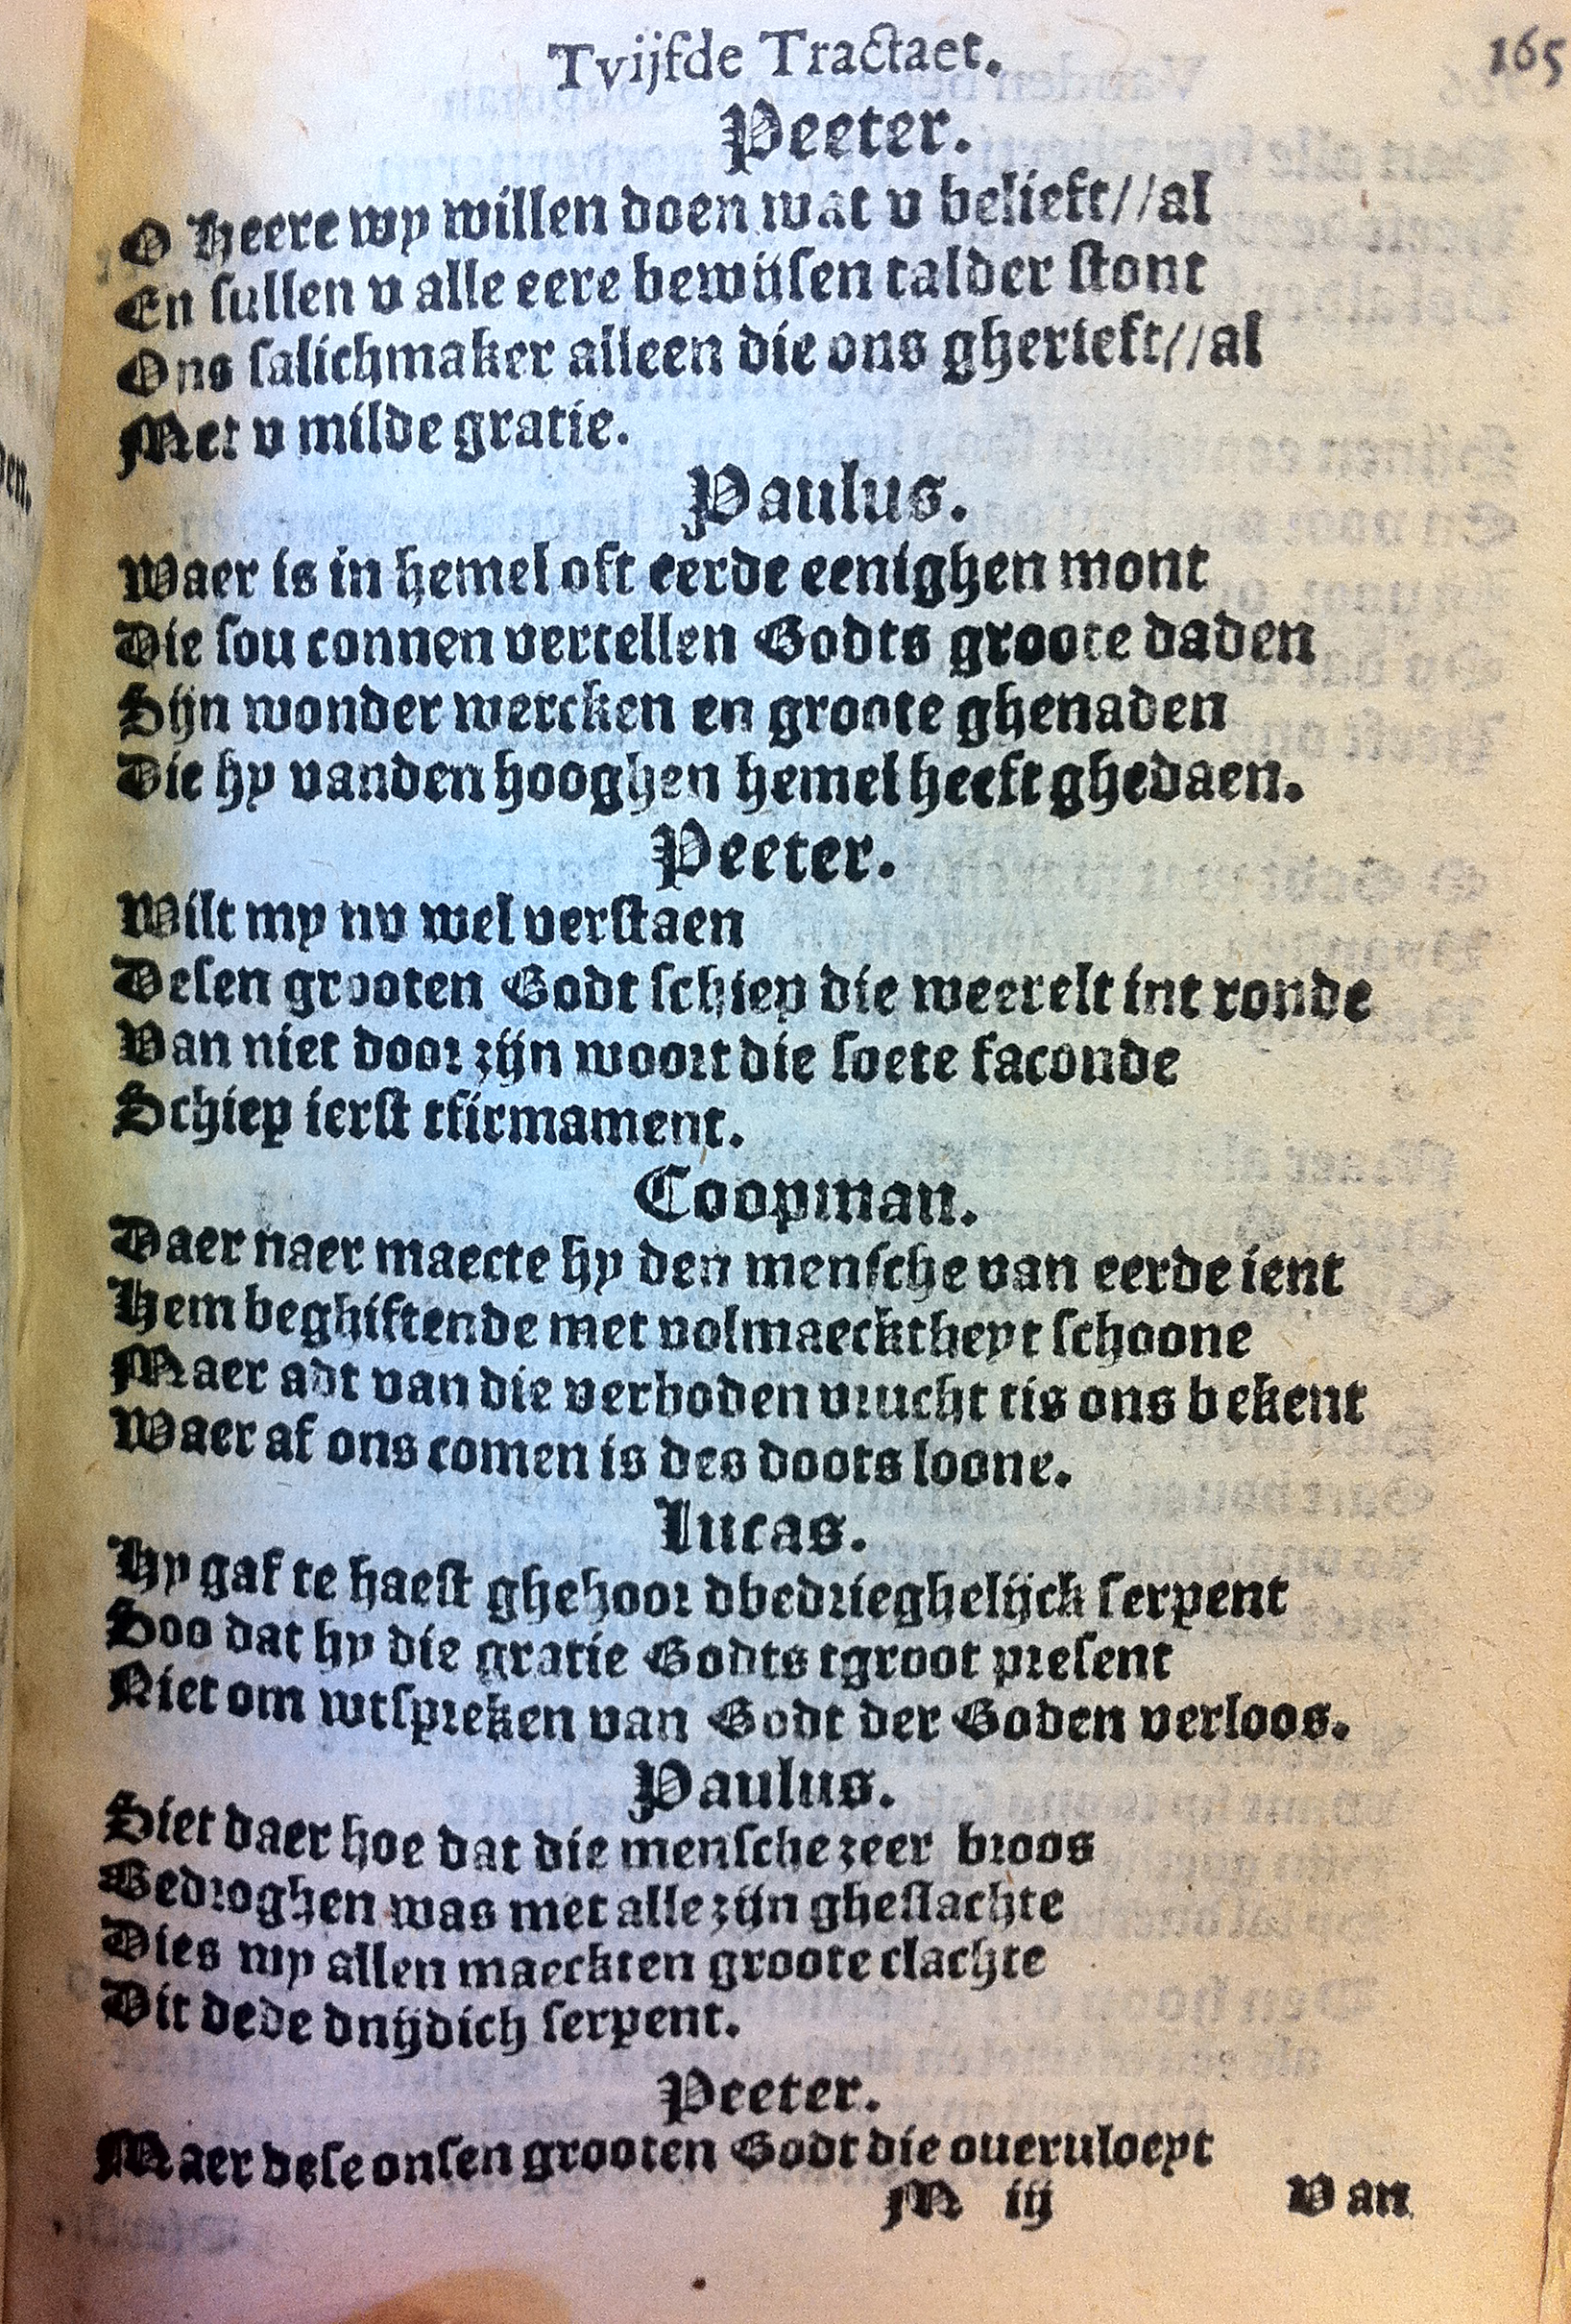 Tvijfde Tractaet. 165
Peeter.
O Heere wy willen doen wat v belieft//al
En sullen v alle eere bewijsen talder stont
Ons salichmaker alleen die ons gherieft//al
Met v milde gratie.
Paulus.
Waer is in hemel oft eerde eenighen mont
Die sou connen vertellen Godts groote daden
Sijn wonder wercken en groote ghenaden
Die hy vanden hooghen hemel heeft ghedaen.
Peeter.
Wilt my nv wel verstaen
Desen grooten Godt schiep die weerelt int ronde
Van niet door zijn woort die soete faconde
Schiep ierst tfirmament.
Coopman.
Daer naer maecte hy den mensche van eerde ient
Hem beghiftende met volmaecktheyt schoone
Maer adt van die verboden vrucht tis ons bekent
Waer af ons comen is des doots loone.
Lucas.
Hy gaf te haest ghehoor dbedrieghelijck serpent
Soo dat hy die gratie Godts tgroot present
Niet om wtspreken van Godt der Goden verloos.
Paulus.
Siet daer hoe dat die mensche zeer broos
Bedroghen was met alle zijn gheslachte
Dies wy allen maeckten groote clachte
Dit dede dnijdich serpent.
Peeter.
Maer dese onsen grooten Godt die oueruloeyt
M iij Van